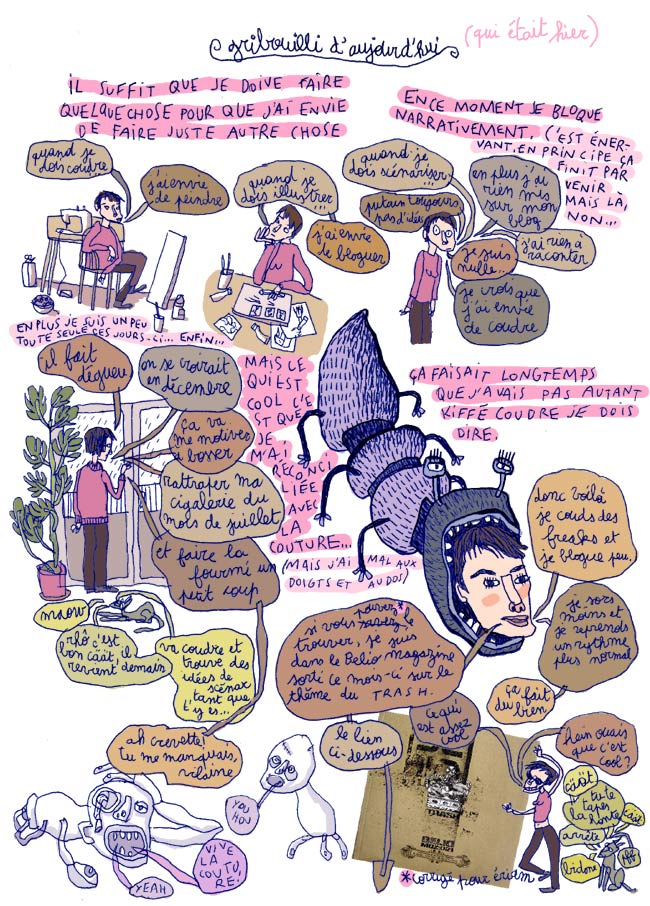 gribouilli d'aujourd'hui
(qui était hier)
IL SUFFIT QUE JE DOIVE FAIRE
QUELQUE CHOSE POUR QUE J'AI ENVIE
DE FAIRE JUSTE AUTRE CHOSE
quand je
dois coudre
j'ai envie
de peindre
quand je
dois illustrer...
j'ai envie
de bloguer
EN CE MOMENT JE BLOQUE
NARRATIVEMENT, C'EST ÉNER-
VANT. EN PRINCIPE ÇA
FINIT PAR
VENIR
MAIS LÀ,
NON...
quand je
dois scénariser...
putain toujours
pas d'idée
en plus j'ai
rien mis
sur mon
blog
j'ai rien à
raconter
je suis
nulle...
je crois que
j'ai envie
de coudre
EN PLUS JE SUIS UN PEU
TOUTE SEULE CES JOURS-CI... ENFIN...
il fait
dégueu
on se croirait
en décembre
ça va
me motiver
à bosser
rattraper ma
cigalerie du
mois de juillet
et faire la
fourmi un
petit coup
MAIS CE
QUI EST
COOL C'E
ST QUE
JE
M'AI
RÉCONCI
LIÉE
AVEC
LA
COUTURE...
(MAIS J'AI MAL AUX
DOIGTS ET AU DOS)
ÇA FAISAIT LONGTEMPS
QUE J'AVAIS PAS AUTANT
KIFFÉ COUDRE JE DOIS
DIRE.
donc voilà
je couds des
freaks et
je blogue peu,
je sors
moins et
je reprends
un rythme
plus normal
ça fait
du bien
maow
rhô c'est
bon câät, il
revient demain
va coudre et
trouve des
idées de
scénar
tant que
t'y es...
pouvez*
si vous savez le
trouver, je suis
dans le Belio magazine
sorti ce mois-ci sur le
thème du TRASH.
le lien
ci-dessous
ce qui
est assez
cool
hein ouais
que c'est
cool?
ah crevette!
tu me manquais,
vilaine
YOU
HOU
VIVE
LA
COUTU
RE!
YEAH
TRASH
BELIO
câäât
tu te
tapes
la honte
arrête
câät
*corrigé pour ériam